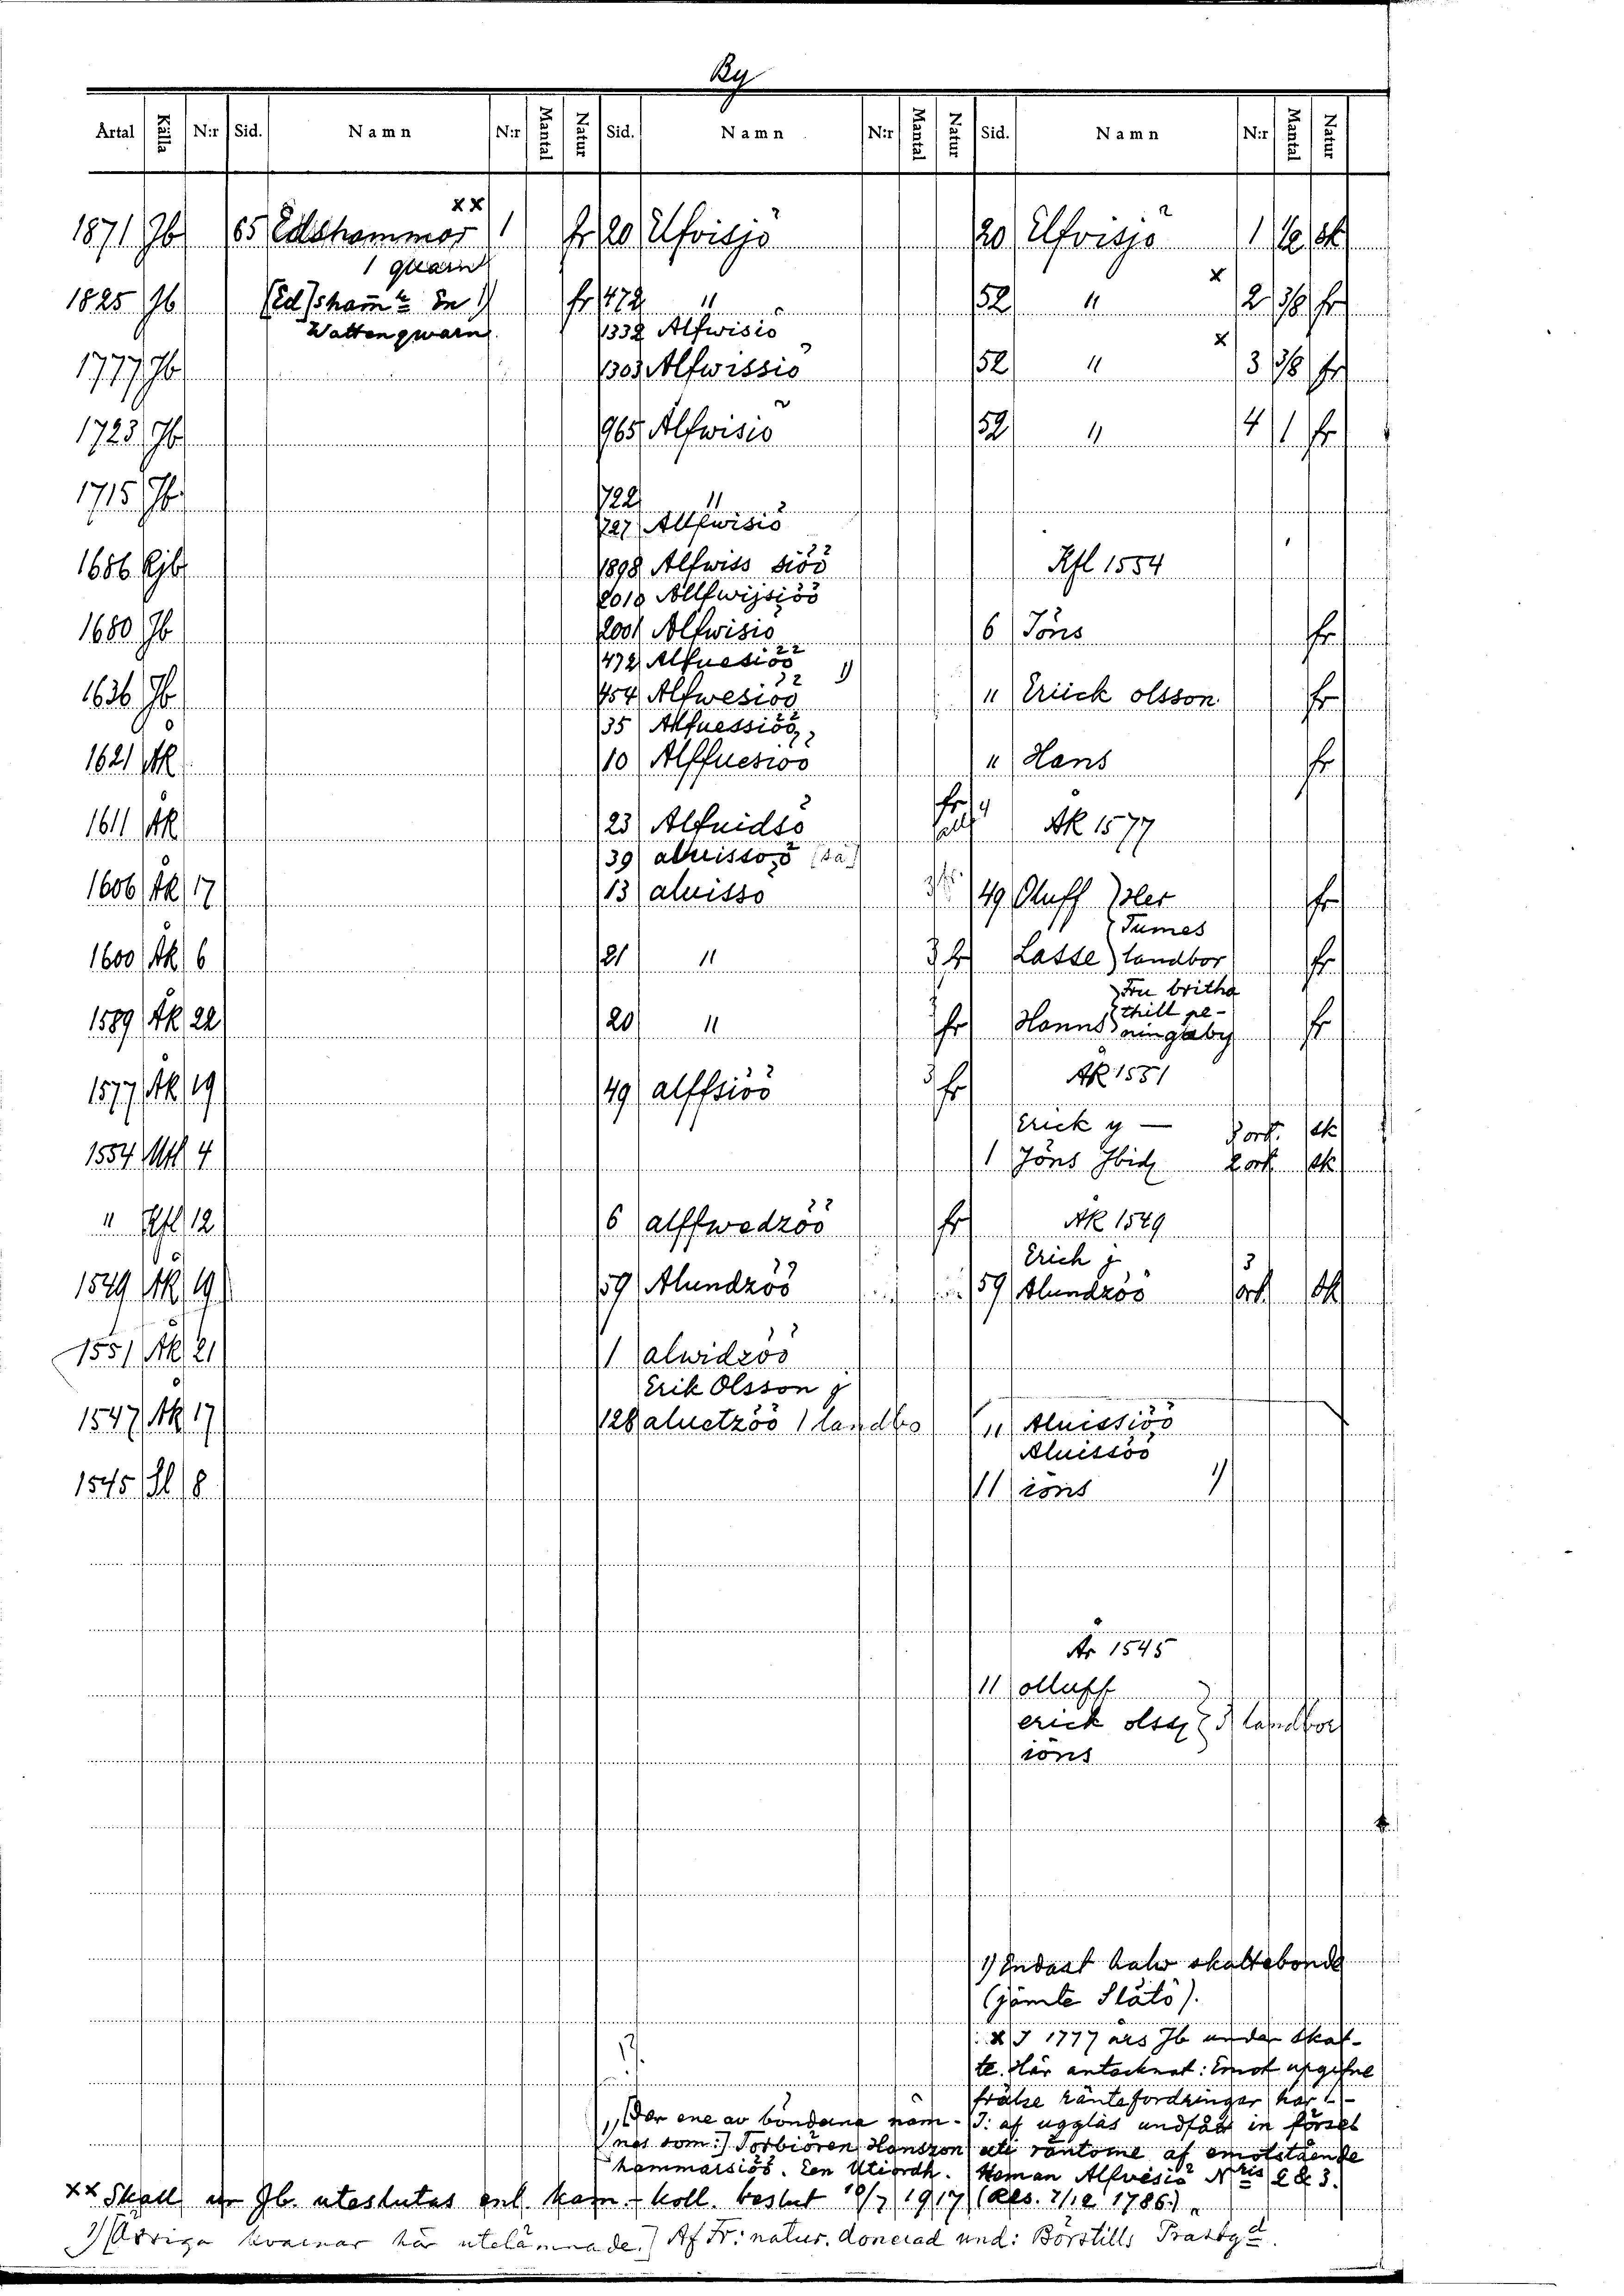 By
Artal Källa N:r Sid. Namn N:r Mantal Natur Sid. Namn N:r Mantal Natur Sid. Namn N:r Mantal Natur
xx
1871 Jb 65 Edshammar 1 fr 20 Elfvisjö 20 Elfvisjö 1 1/2 sk
1 quarn x
1825 Jb fr 472 " 52 " 2 3/8 fr
Watten qwarn 1332 Alfwisiö x
1777 Jb 1303 Alfwissiö 52 " 3 3/8 fr
1723 Jb 965 Alfwisiö 52 " 4 1 fr
1715 Jb 722 "
727 Allfwisiö
1686 Kjb 1898 Alfwiss siöö Rfl 1554
2010 Allfwijsiöö
1680 Jb 2001 Alfwisiö 6 Jöns fr
472 Alfuesiöö 1)
1636 Jb 454 Alfwesiöö " Eriick olsson fr
35 Alfuessiöö
1621 Åk 10 Alffuesiöö " Hans fr
1611 Åk 23 Alfuidsö fr ÅK 1577
39 aluissoö (så)
1606 Åk 17 13 aluisso 3 fr 49 Oluff fr
Tumes
1600 Åk 6 21 " 3 fr Lasse landbor fr
Fru britha
thill pe-
1589 Åk 22 20 " fr Hanns ningaby fr
1577 Åk 19 49 alffsiöö 3 fr ÅR 1551
Erick y — sk
1554 4 1 Jöns Jbid sk
" Rfl 12 6 alffwedzöö fr ÅK 1549
Erich j 3
1549 Åk 19 59 Alundzöö 59 Alundzöö ort sk
1551 Åk 21 1 alwidzöö
Erik Olsson j
1547 Åk 17 128 aluetzöö 1 landbo 11 Aluissiöö
Aluissöö
1545 8 11 iöns 1)
År 1545
11 olluff
erick olss 3 landbor
iöns
1) Endast halv skattebonde
(jämte Slätö).
x I 1777 års Jb under Skat-
te. Här antecknat: Emot upgifne
frälse räntefordringar har
Den ene av bönderna näm- af ugglas undfått in försel
nes som: Torbiören Hanszon uti räntorne af emotstående
hammarsiöö. Een Utiordh. Heman Alfvesiö N:ris 2 & 3.
xx Skall ur Jb. uteslutas enl. Kam.-koll. beslut 10/7 1917 (Res. 7/12 1786)
1) Övriga kvarnar här utelämnade.) Af Fr: natur. donerad und: Börstills Prästgd.